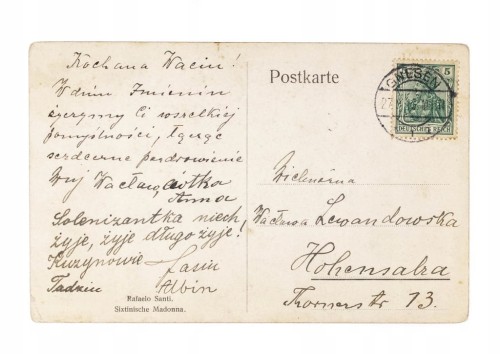 Kochana Waciu!
W dniu Imienin
życzymy Ci wszelkiej
pomyślności, łącząc
serdeczne pozdrowienie
Wuj Wacław, Ciotka
Anna
Solenizantka niech
żyje, żyje długo żyje!
Kuzynowie
Tadziu Albin
Rafaelo Santi.
Sixtinische Madonna.
Postkarte
GNESEN
5
DEUTSCHES REICH
Wielmożna
Wacława Lewandowska
Hohensalza
Str 13.